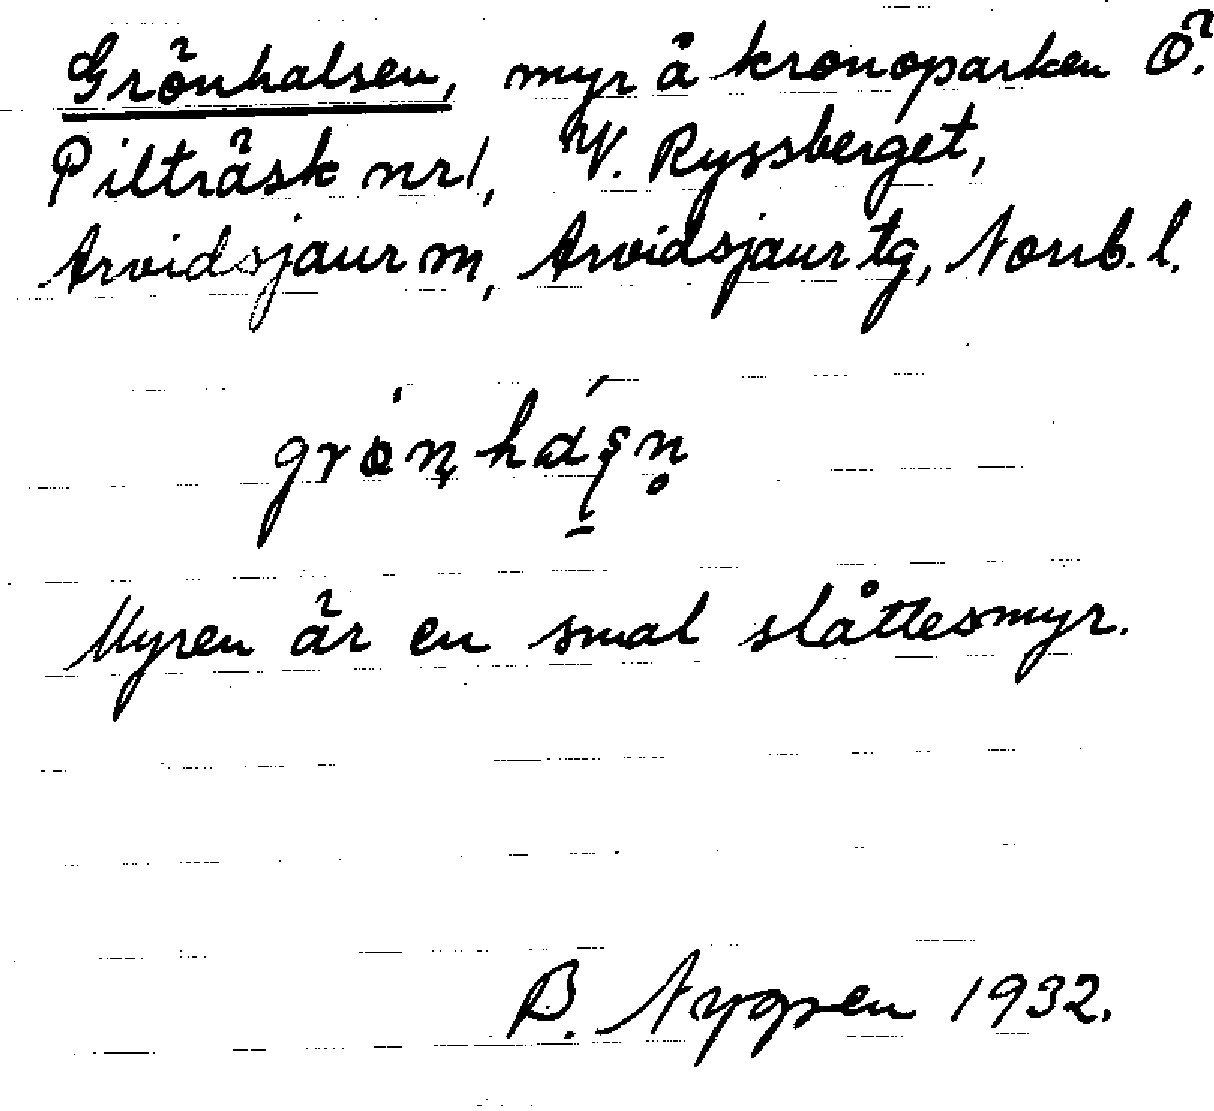 Grönhalsen, myr å kronoparken Ö.
Pilträsk nr 1, V. Ryssberget,
Arvidsjaur m, Arvidsjaur tg, Norrb. l.
Myren är en smal slåttesmyr.
B. Nygren 1932.